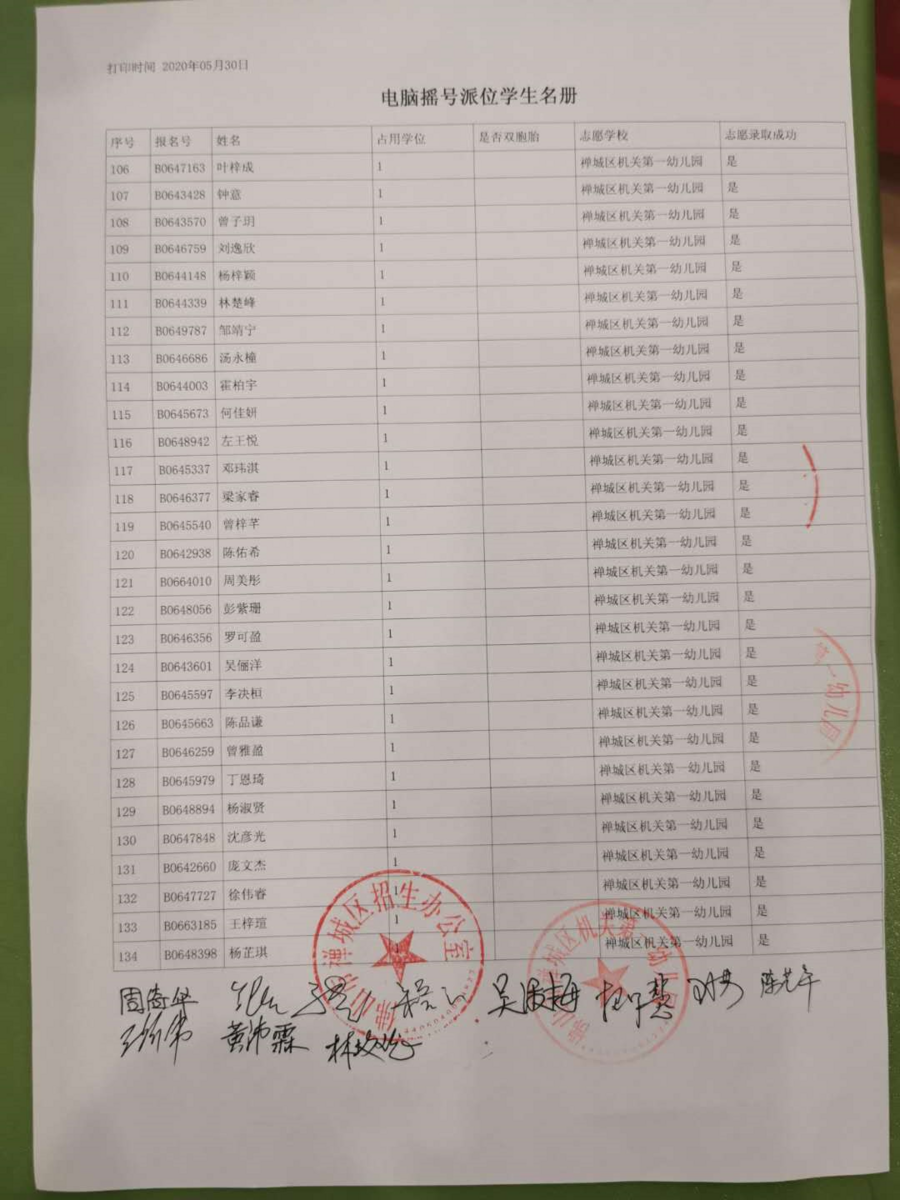 打印时间 2020年05月30日
电脑摇号派位学生名册
序号 报名号 姓名 占用学位 是否双胞胎 志愿学校 志愿录取成功
106 B0647163 叶梓成 1 禅城区机关第一幼儿园 是
107 B0643428 钟意 1 禅城区机关第一幼儿园 是
108 B0643570 曾子玥 1 禅城区机关第一幼儿园 是
109 B0646759 刘逸欣 1 禅城区机关第一幼儿园 是
110 B0644148 杨梓颖 1 禅城区机关第一幼儿园 是
111 B0644339 林楚峰 1 禅城区机关第一幼儿园 是
112 B0649787 邹靖宁 1 禅城区机关第一幼儿园 是
113 B0646686 汤永橦 1 禅城区机关第一幼儿园 是
114 B0644003 霍柏宇 1 禅城区机关第一幼儿园 是
115 B0645673 何佳妍 1 禅城区机关第一幼儿园 是
116 B0648942 左王悦 1 禅城区机关第一幼儿园 是
117 B0645337 邓玮淇 1 禅城区机关第一幼儿园 是
118 B0646377 梁家睿 1 禅城区机关第一幼儿园 是
119 B0645540 曾梓芊 1 禅城区机关第一幼儿园 是
120 B0642938 陈佑希 1 禅城区机关第一幼儿园 是
121 B0664010 周美彤 1 禅城区机关第一幼儿园 是
122 B0648056 彭紫珊 1 禅城区机关第一幼儿园 是
123 B0646356 罗可盈 1 禅城区机关第一幼儿园 是
124 B0643601 吴俪洋 1 禅城区机关第一幼儿园 是
125 B0645597 李决桓 1 禅城区机关第一幼儿园 是
126 B0645663 陈品谦 1 禅城区机关第一幼儿园 是
127 B0646259 曾雅盈 1 禅城区机关第一幼儿园 是
128 B0645979 丁恩琦 1 禅城区机关第一幼儿园 是
129 B0648894 杨淑贤 1 禅城区机关第一幼儿园 是
130 B0647848 沈彦光 1 禅城区机关第一幼儿园 是
131 B0642660 庞文杰 1 禅城区机关第一幼儿园 是
132 B0647727 徐伟睿 1 禅城区机关第一幼儿园 是
133 B0663185 王梓瑄 1 禅城区机关第一幼儿园 是
134 B0648398 杨芷琪 1 禅城区机关第一幼儿园 是
佛山市禅城区招生办公室
一幼儿园
黄沛霖